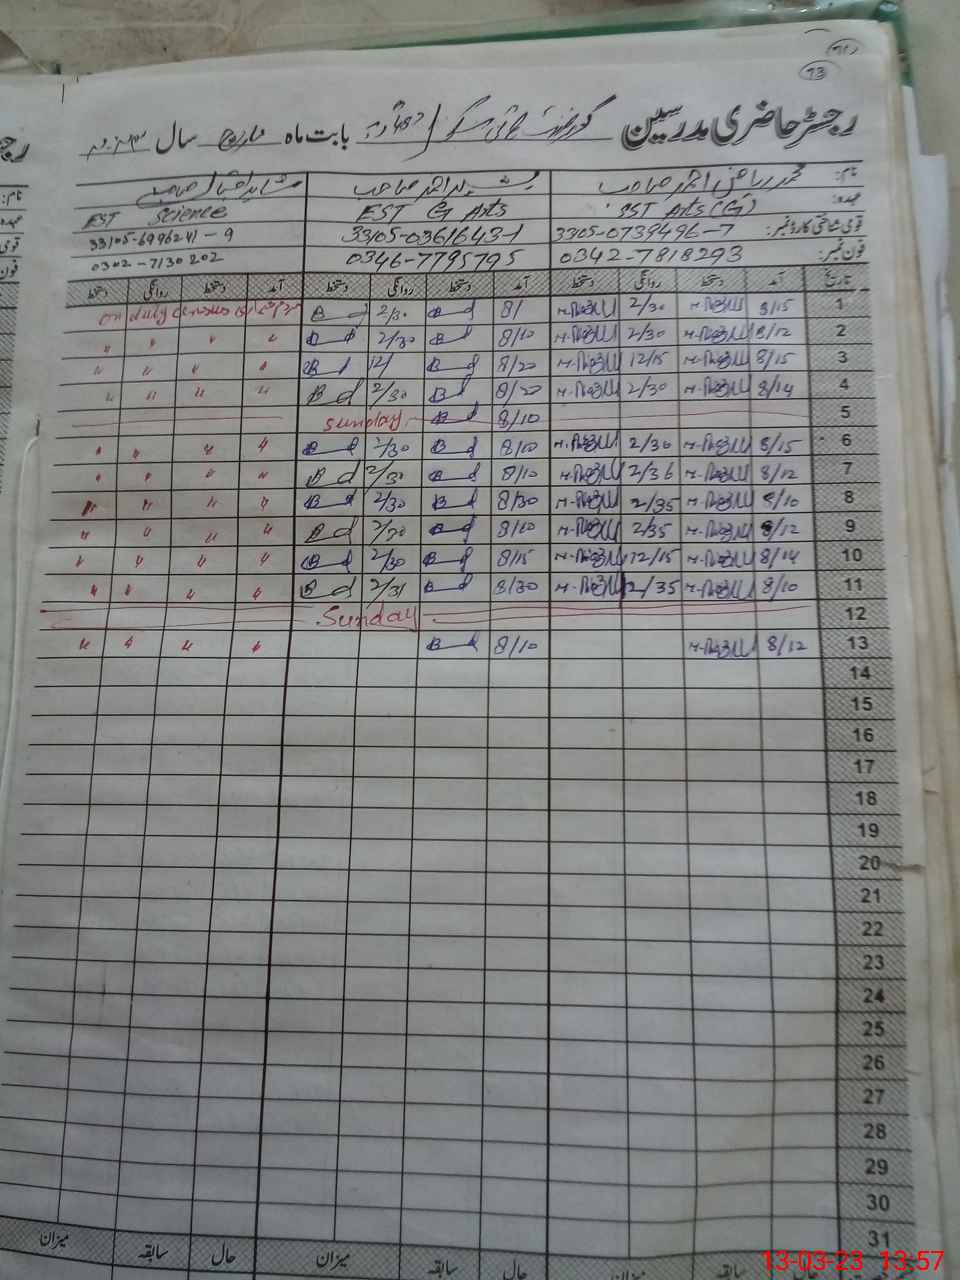 73
رجسٹر حاضری مدرسین گورنمنٹ ہائی سکول بابت ماہ مارچ سال
نام: محمد ریاض احمد صاحب بشیر احمد صاحب شاہد اقبال صاحب
عہدہ: SST Arts (G) EST G Arts EST Science
قومی شناختی کارڈ نمبر: 3305-0739496-7 33105-0361643-1 33105-6996241-9
فون نمبر: 0342-7818293 0346-7795795 0302-7130202
تاریخ آمد دستخط روانگی دستخط آمد دستخط روانگی دستخط آمد دستخط روانگی دستخط
1 8/15 2/30 8/ 2/30 on duty census
2 8/12 2/30 8/10 2/30 " " " "
3 8/15 12/15 8/20 12/ " " " "
4 8/14 2/30 8/20 2/30 " " " "
5 8/10 Sunday
6 8/15 2/30 8/00 2/30 " " " "
7 8/12 2/36 8/10 2/30 " " " "
8 8/10 2/35 8/30 2/30 " " " "
9 8/12 2/35 8/10 2/30 " " " "
10 8/14 12/15 8/15 2/30 " " " "
11 8/10 2/35 8/30 2/31 " " " "
12 Sunday
13 8/12 8/10 " " " "
14
15
16
17
18
19
20
21
22
23
24
25
26
27
28
29
30
31
حال سابقہ میزان حال سابقہ میزان
13-03-23 13:57